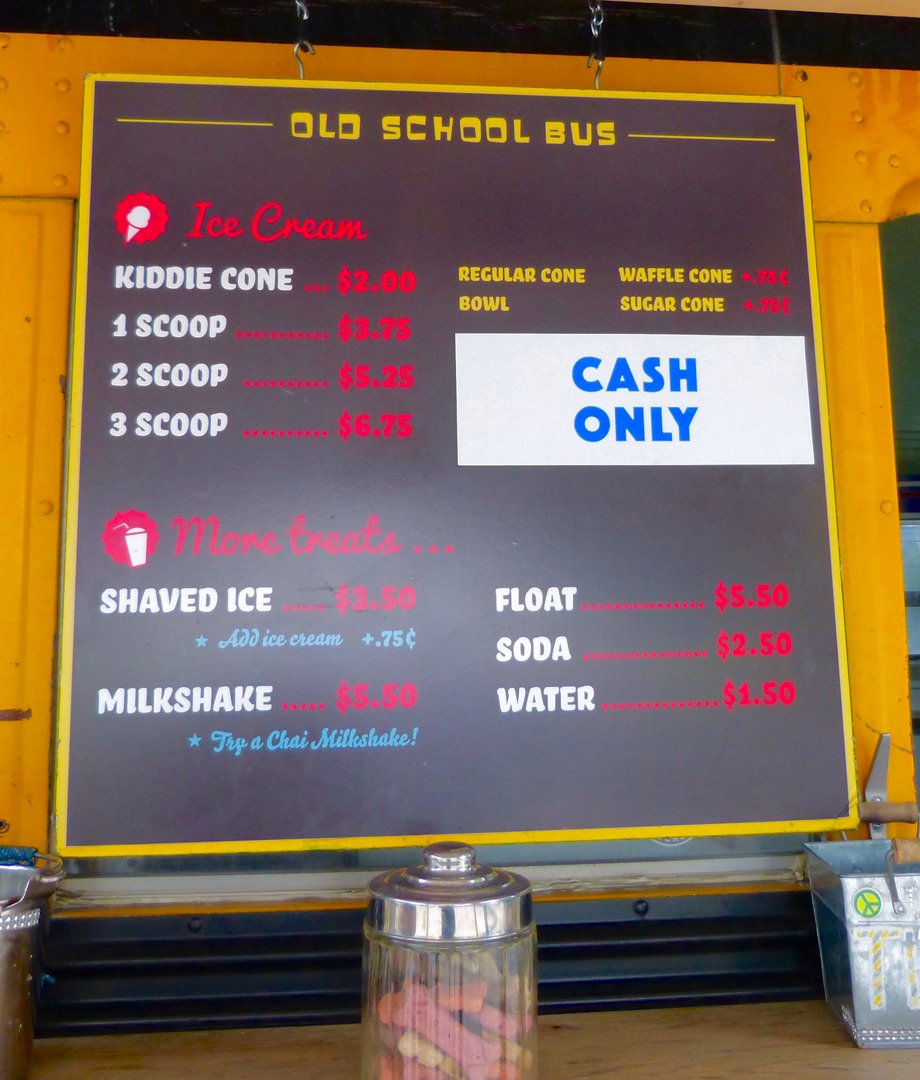 OLD SCHOOL BUS
Ice Cream
KIDDIE CONE ... $2.00
1 SCOOP .......... $3.75
2 SCOOP .......... $5.25
3 SCOOP .......... $6.75
REGULAR CONE
BOWL
WAFFLE CONE +.75¢
SUGAR CONE +.75¢
CASH
ONLY
More treats ...
SHAVED ICE ..... $3.50
★ Add ice cream +.75¢
MILKSHAKE ..... $5.50
★ Try a Chai Milkshake!
FLOAT ............... $5.50
SODA ............... $2.50
WATER .............. $1.50